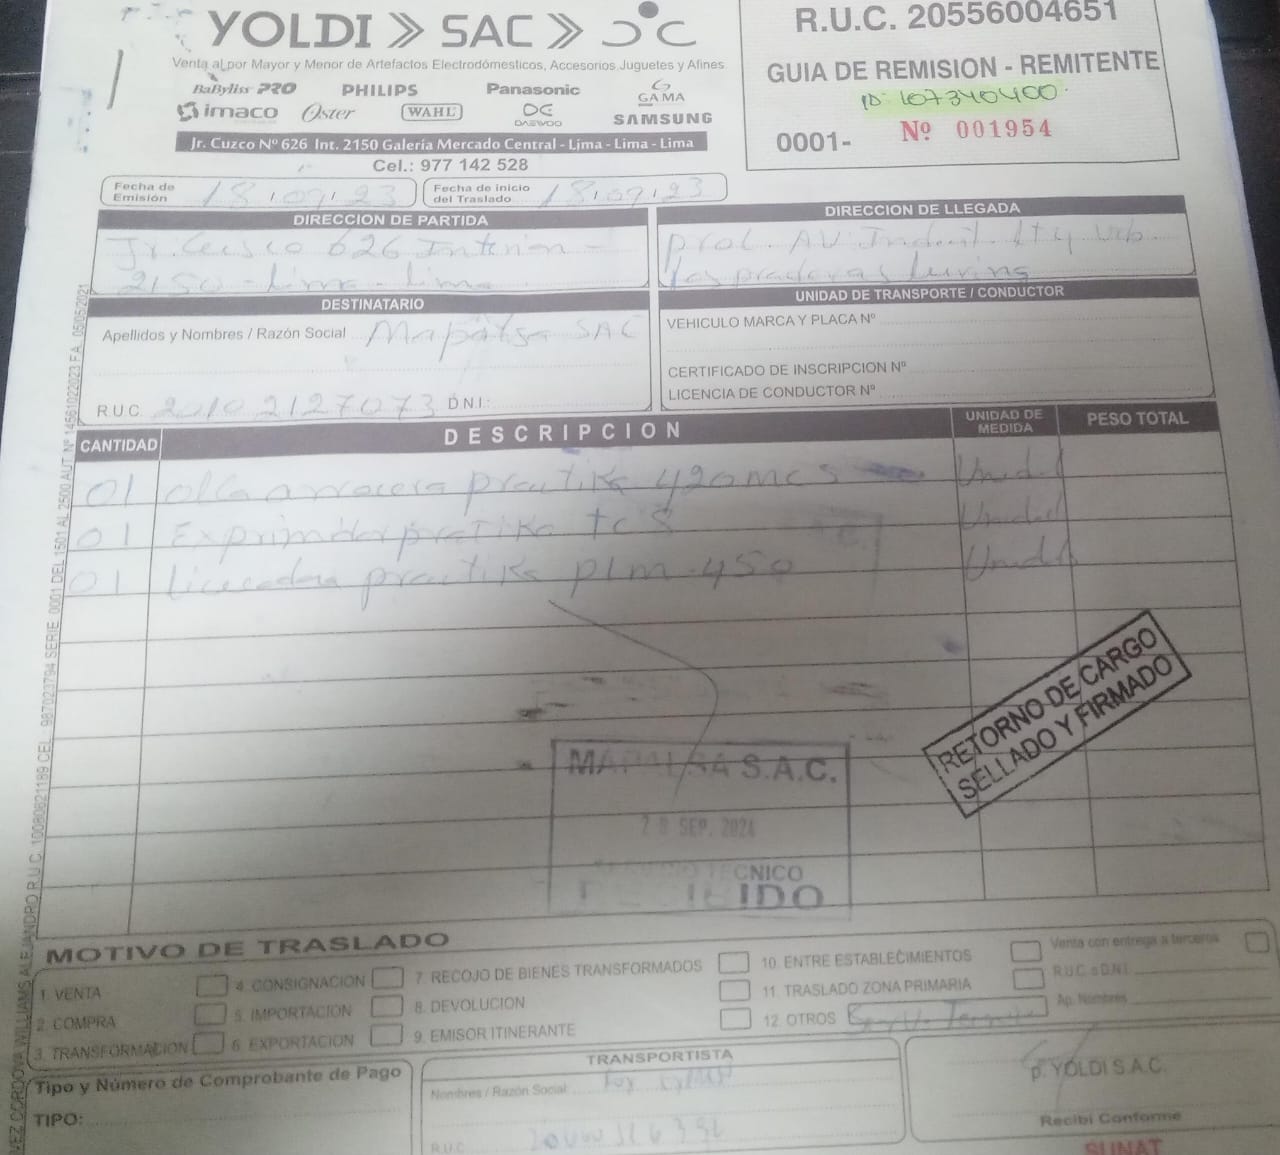 YOLDI SAC
Venta al por Mayor y Menor de Artefactos Electrodómesticos, Accesorios Juguetes y Afines
BaByliss PRO PHILIPS Panasonic GAMA
imaco Oster WAHL DAEWOO SAMSUNG
Jr. Cuzco Nº 626 Int. 2150 Galería Mercado Central - Lima - Lima - Lima
Cel.: 977 142 528
R.U.C. 20556004651
GUIA DE REMISION - REMITENTE
ID: 107340400
0001- Nº 001954
Fecha de Emisión 18,09,23
Fecha de inicio del Traslado 18,09,23
DIRECCION DE PARTIDA
Jr. Cusco 626 Interior -
2150 - Lima - Lima
DIRECCION DE LLEGADA
prol. AV. Indust. lt 4 Urb.
las praderas Lurins
DESTINATARIO
Apellidos y Nombres / Razón Social Mapalsa SAC
R.U.C. 20102127073 DNI:
UNIDAD DE TRANSPORTE / CONDUCTOR
VEHICULO MARCA Y PLACA Nº
CERTIFICADO DE INSCRIPCION Nº
LICENCIA DE CONDUCTOR Nº
CANTIDAD DESCRIPCION UNIDAD DE MEDIDA PESO TOTAL
01 olla arrocera practika 420mcs Unidd
01 Exprimidor practika tcs Unidd
01 licuadora practika plm-450 Unidd
RETORNO DE CARGO
SELLADO Y FIRMADO
MAPALSA S.A.C.
SEP. 2024
MOTIVO DE TRASLADO
1. VENTA
2. COMPRA
3. TRANSFORMACION
4. CONSIGNACION
5. IMPORTACION
6. EXPORTACION
7. RECOJO DE BIENES TRANSFORMADOS
8. DEVOLUCION
9. EMISOR ITINERANTE
10. ENTRE ESTABLECIMIENTOS
11. TRASLADO ZONA PRIMARIA
12. OTROS
Venta con entrega a terceros
R.U.C. o D.N.I.
Ap. Nombres
Tipo y Número de Comprobante de Pago
TIPO:
TRANSPORTISTA
Nombres / Razón Social:
R.U.C.
p. YOLDI S.A.C.
Recibí Conforme
SUNAT